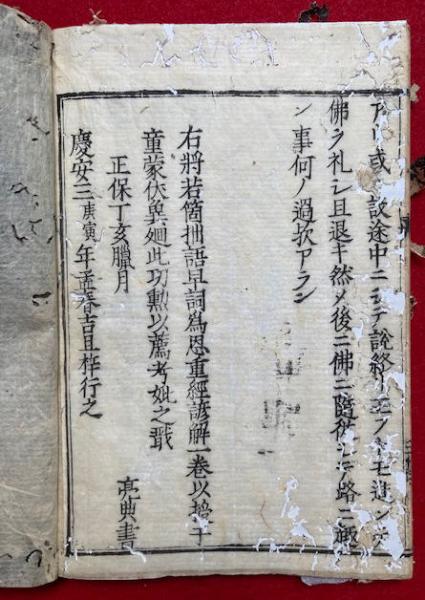 或 設途中ニシテ説終
佛ヲ礼シ且退キ然メ後ニ佛ニ隨 路ニ
ン事何ノ過欤アラン
右將若箇拙語早詞為恩重經諺解一卷以 于
童蒙伏冀廻此功勲以薦考妣之
正保丁亥臘月
亮典書
慶安三庚寅年孟春吉旦梓行之